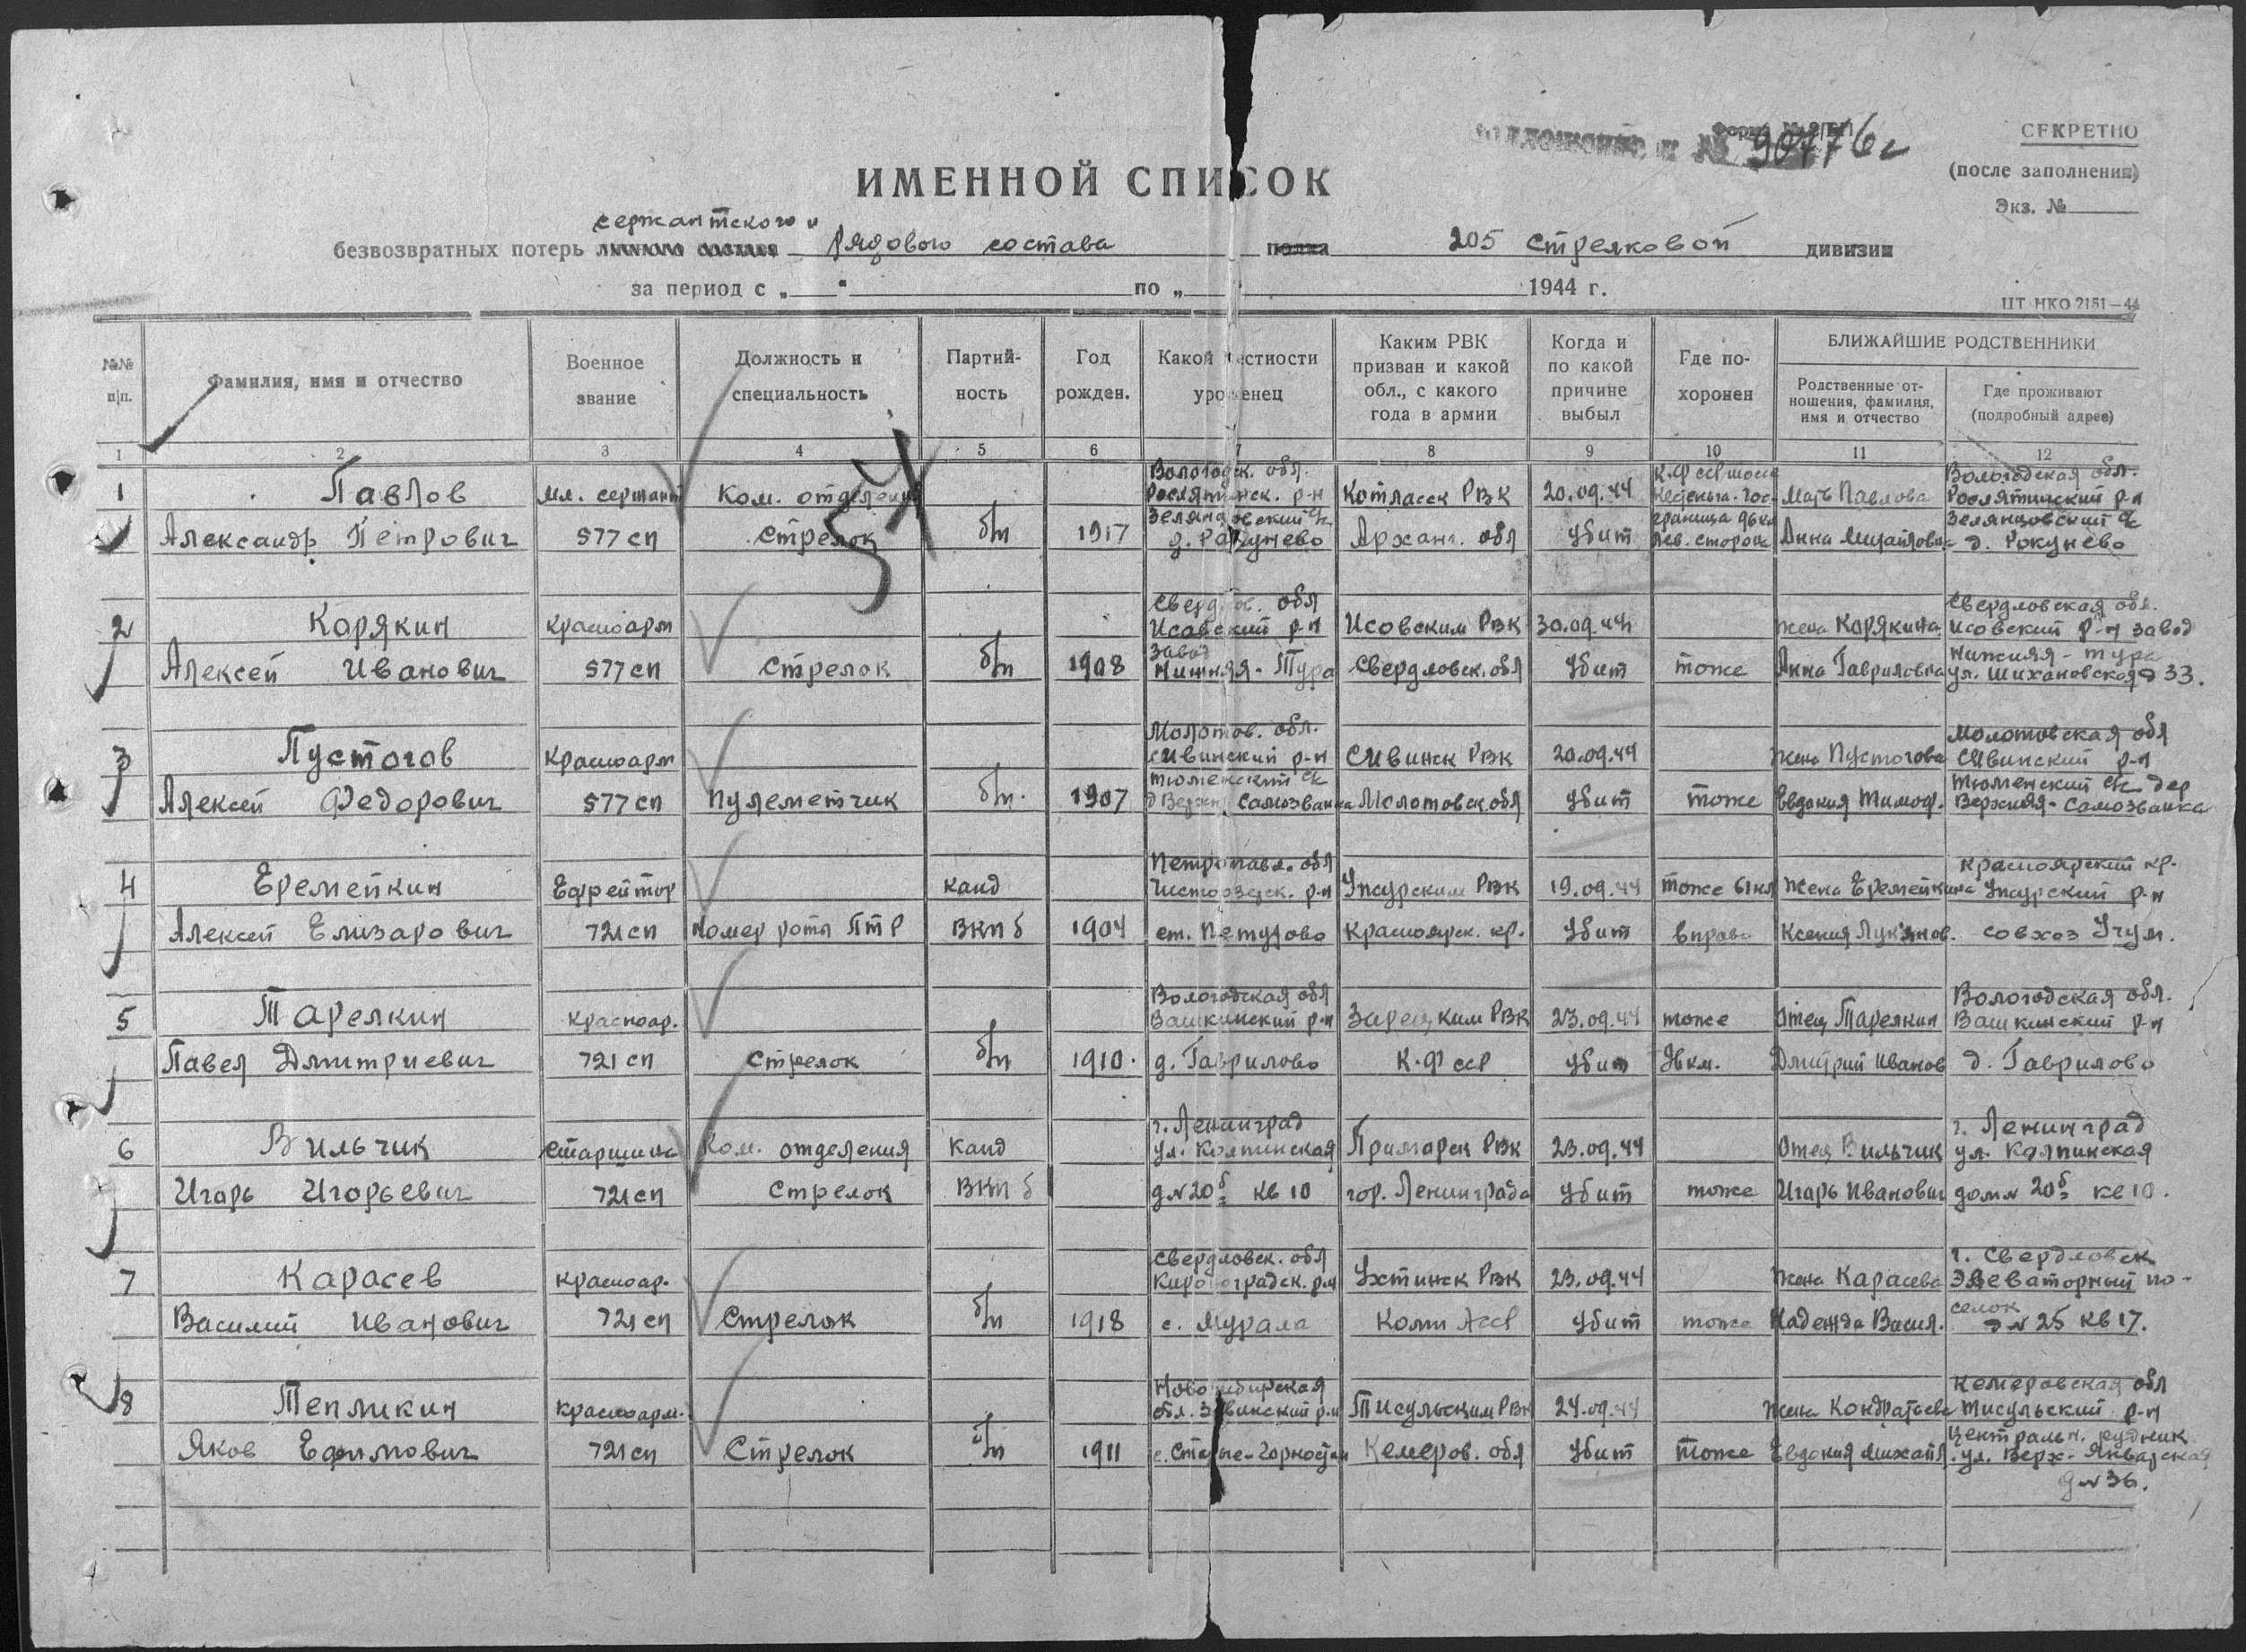 № 90476с
СЕКРЕТНО
(после заполнения)
Экз. №
ИМЕННОЙ СПИСОК
сержантского и
безвозвратных потерь личного состава рядового состава полка 205 стрелковой дивизии
за период с „ “ по „ 1944 г.
ЦТ НКО 2151—44
№№ п|п.
Фамилия, имя и отчество
Военное звание
Должность и специальность
Партий-ность
Год рожден.
Какой местности уроженец
Каким РВК призван и какой обл., с какого года в армии
Когда и по какой причине выбыл
Где по-хоронен
БЛИЖАЙШИЕ РОДСТВЕННИКИ
Родственные от-ношения, фамилия, имя и отчество
Где проживают (подробный адрес)
1 2 3 4 5 6 7 8 9 10 11 12
Вологодск. обл. К.Ф ССР шоссе Вологодская обл.
1 Павлов мл. сержант Ком. отделения Рослятинск. р-н Котласск РВК 20.09.44 Кестеньга-Гос. Мать Павлова Рослятинский р-н
Зеленцовский с/с граница 96 км Зелянцовский с/с
Александр Петрович 577 сп стрелок б/п 1917 д. Ракунево Арханг. обл убит лев. сторона Анна Михайловна д. Рокунево
Свердлов. обл Свердловская обл.
2 Корякин Красноарм Исовский р-н Исовским РВК 30.09.44 жена Корякина Исовский р-н завод
завод Нижняя-Тура
Алексей Иванович 577 сп стрелок б/п 1908 Нижняя-Тура Свердловск. обл убит тоже Анна Гавриловна ул. Шихановская д 33.
Молотов. обл. Молотовская обл
3 Пустогов Красноарм Сивинский р-н Сивинск РВК 20.09.44 жена Пустогова Сивинский р-н
Тюменский с/с Тюменский с/с дер
Алексей Федорович 577 сп пулеметчик б/п. 1907 д Верхн Самозванка Молотовск. обл убит тоже Евдокия Тимоф. Верхняя-Самозванка
Петропавл. обл Красноярский кр.
4 Еремейкин Ефрейтор канд Чистоозерск. р-н Ужурским РВК 19.09.44 тоже 61 км Жена Еремейкина Ужурский р-н
Алексей Елизарович 721 сп Номер роты ПТР ВКП б 1904 ст. Петухово Красноярск. кр. убит вправо Ксения Лукянов. совхоз Учум.
Вологодская обл Вологодская обл.
5 Тарелкин Красноар. Вашкинский р-н Зарецким РВК 23.09.44 тоже Отец Тарелкин Вашкинский р-н
Павел Дмитриевич 721 сп стрелок б/п 1910 д. Гаврилово К-Ф сср убит км. Дмитрий Иванов д. Гаврилово
г. Ленинград г. Ленинград
6 Вильчик Старшина Ком. отделения Канд ул. Колпинская Приморск РВК 23.09.44 Отец Вильчик ул. Калпинская
Игорь Игорьевич 721 сп стрелок ВКП б д №20б кв 10 гор. Ленинграда убит тоже Игорь Иванович дом № 20б кв 10.
Свердловск. обл г. Свердловск
7 Карасев Красноар. Кировоградск. р-н Ухтинск РВК 23.09.44 жена Карасева Элеваторный по-
селок
Василий Иванович 721 сп Стрелок б/п 1918 с. Мурала Коми Асср убит тоже Надежда Васил. д № 25 кв 17.
Новосибирская Кемеровская обл
8 Тепликин Красноарм. обл. р-н Тисульским РВК 24.09.44 жена Кондратьева Тисульский р-н
Центральн. рудник
Яков Ефимович 721 сп Стрелок б/п 1911 с. Старые-Горностаи Кемеров. обл убит тоже Евдокия Михайл. ул. Верх-Январская
д № 36.